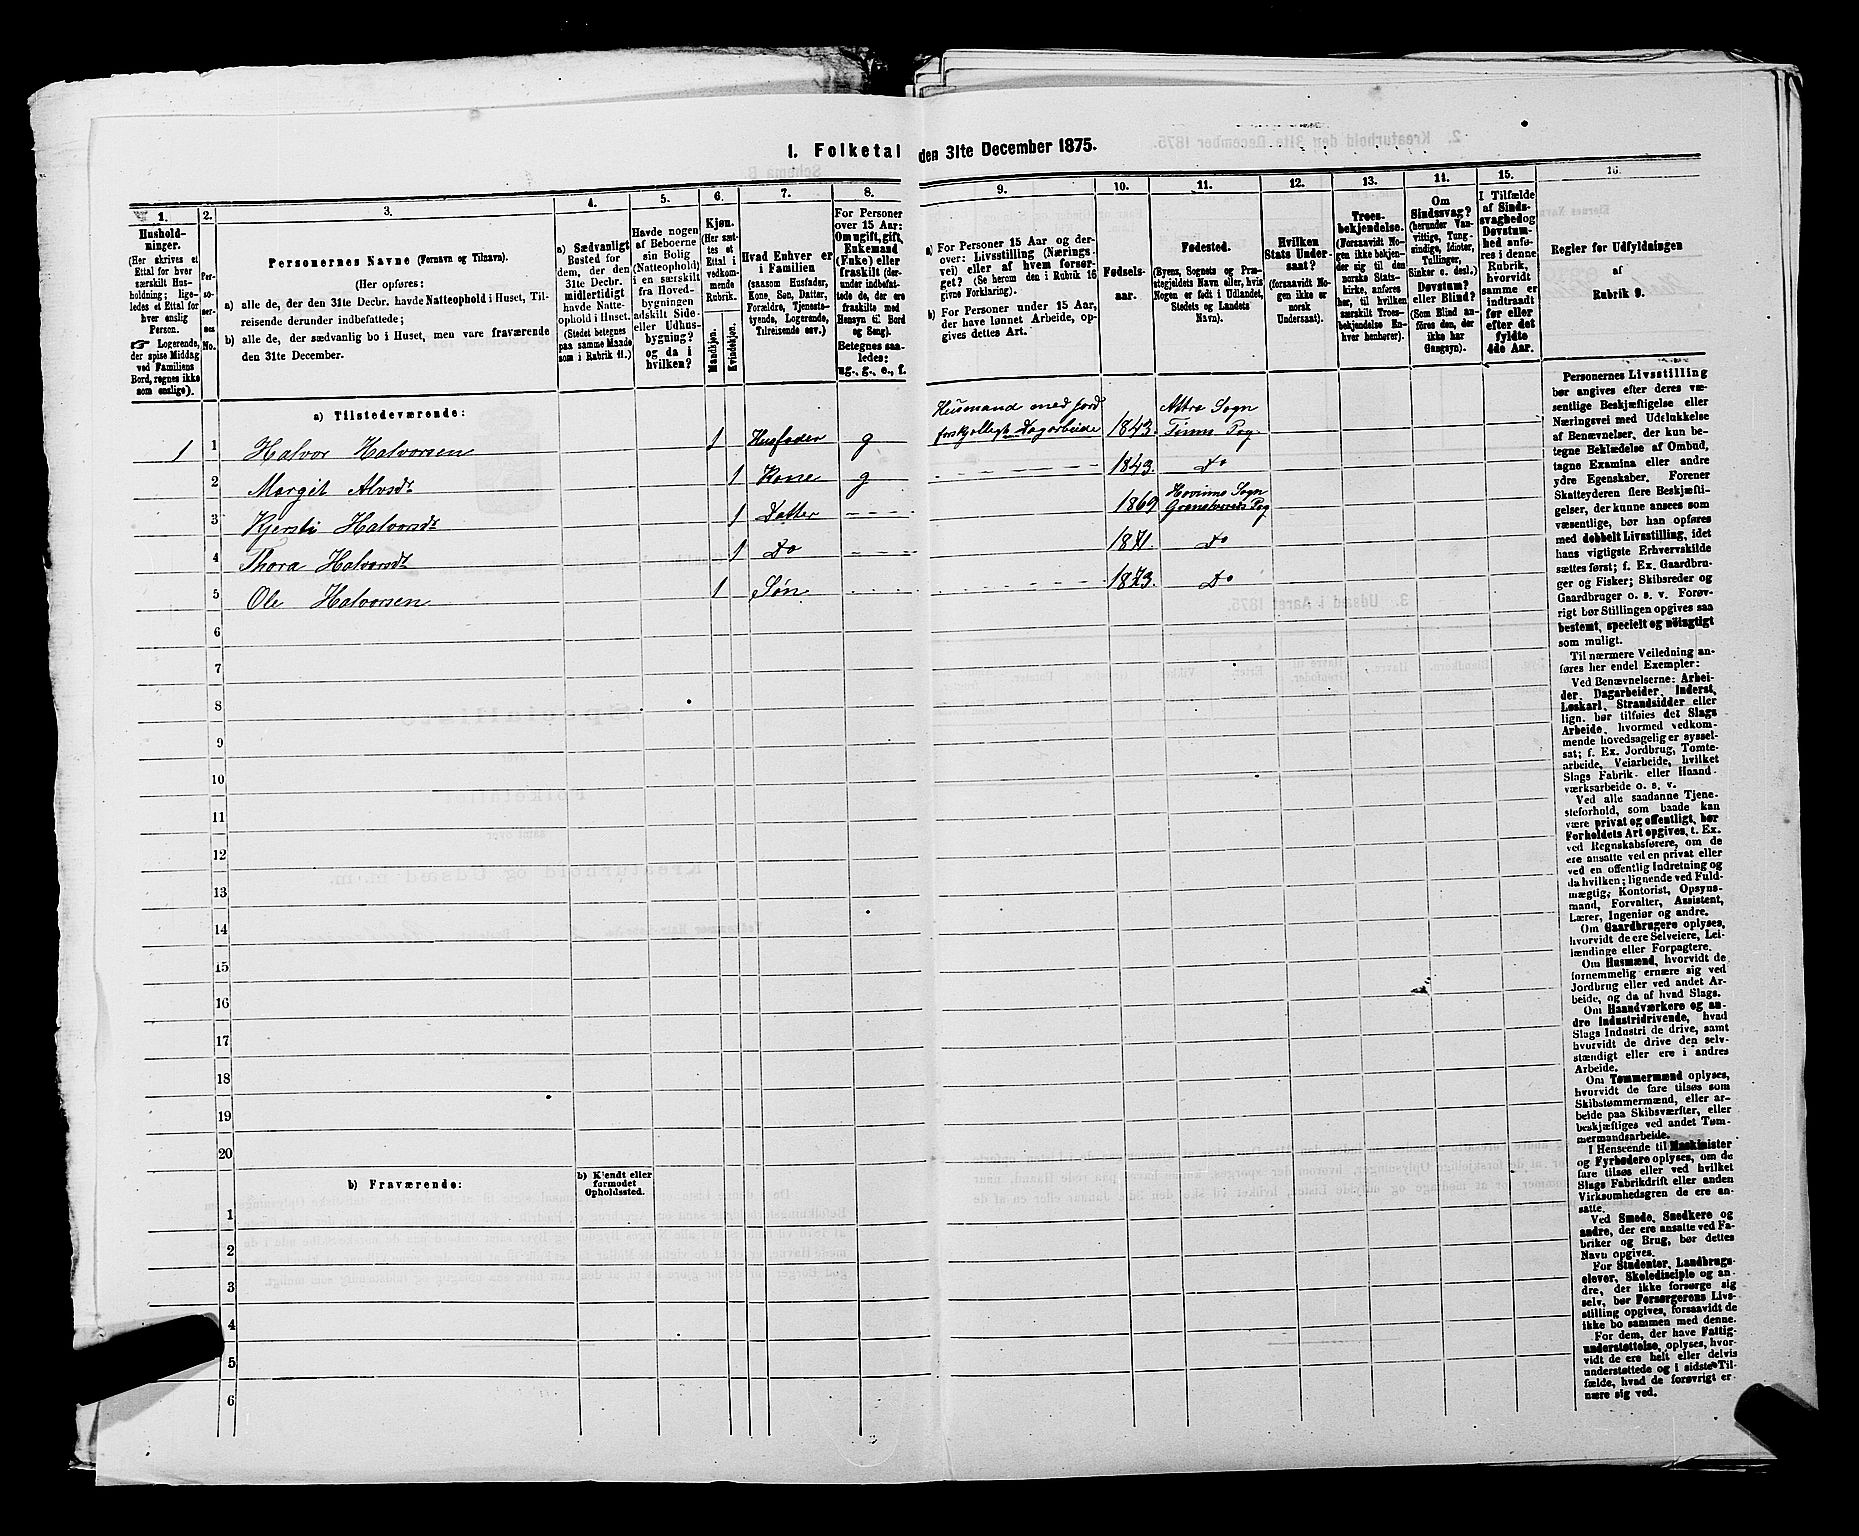 1. Folketal den 31te December 1875.
1.
Hushold-
ninger.
(Her skrives et
Ettal for hver
særskilt Hus-
holdning; lige-
ledes et Ettal for
hver enslig
Person.
☞ Logerende,
der spise Middag
ved Familiens
Bord, regnes ikke
som enslige).
2.
Per-
so-
ner-
nes
No.
3.
Personernes Navne (Fornavn og Tilnavn).
(Her opføres:
a) alle de, der den 31te Decbr. havde Natteophold i Huset, Til-
reisende derunder indbefattede;
b) alle de, der sædvanlig bo i Huset, men vare fraværende
den 31te December.
4.
a) Sædvanligt
Bosted for
dem, der den
31te Decbr.
midlertidigt
havde Natte-
ophold i Huset.
(Stedet betegnes
paa samme Maade
som i Rubrik 11.)
5.
Havde nogen
af Beboerne
sin Bolig
(Natteophold)
i en særskilt
fra Hoved-
bygningen
adskilt Side-
eller Udhus-
bygning?
og da i
hvilken?
6.
Kjøn.
(Her sæt-
tes et
Ettal i
vedkom-
mende
Rubrik.
Mandkjøn.
Kvindekjøn.
7.
Hvad Enhver er
i Familien
(saasom Husfader,
Kone, Søn, Datter,
Forældre, Tjeneste-
tyende, Logerende,
Tilreisende osv.)
8.
For Personer
over 15 Aar:
Om ugift, gift,
Enkemand
(Enke) eller
fraskilt (der-
under indbefat-
tede de, der ere
fraskilte med
Hensyn til Bord
og Seng).
Betegnes saa-
ledes:
ug., g., e., f.
9.
a) For Personer 15 Aar og der-
over: Livsstilling (Nærings-
vei) eller af hvem forsør-
get? (Se herom den i Rubrik 16
givne Forklaring).
b) For Personer under 15 Aar,
der have lønnet Arbeide, op-
gives dettes Art.
10.
Fødsels-
aar.
11.
Fødested.
(Byens, Sognets og Præ-
stegjeldets Navn eller, hvis
Nogen er født i Udlandet,
Stedets og Landets
Navn).
12.
Hvilken
Stats Under-
saat?
(forsaavidt No-
gen ikke er
norsk
Undersaat).
13.
Troes-
bekjendelse.
(Forsaavidt No-
gen ikke bekjen-
der sig til den
norske Stats-
kirke, anføres
her, til hvilken
særskilt Troes-
bekjendelse En-
hver henhører).
14.
Om
Sindssvag?
(herunder Van-
vittige, Tung-
sindige, Idioter,
Tullinger,
Sinker o. desl.)
Døvstum?
eller Blind?
(Som Blind an-
føres den, der
ikke har
Gangsyn).
15.
I Tilfælde
af Sinds-
svaghed og
Døvstum-
hed anfø-
res i denne
Rubrik,
hvorvidt
samme er
indtraadt
før eller
efter det
fyldte
4de Aar.
16.
Regler for Udfyldningen
af
Rubrik 9.
a) Tilstedeværende:
1 1 Halvor Halvorsen 1 Husfader g Husmand med Jord forskjelligt Dagarbeide 1843. Attra Sogn Tinns Pg.
2 Margit Alvsdt 1 Kone g 1843. Do
3 Kjersti Halvorsdt 1 Datter 1869 Hovinns Sogn Gransherreds Pg
4 Thora Halvorsdt 1 Do 1871. Do
5 Ole Halvorsen 1 Søn 1873. Do
6
7
8
9
10
11
12
13
14
15
16
17
18
19
20
b) Fraværende:
b) Kjendt eller
formodet
Opholdssted.
1
2
3
4
5
6
Personernes Livsstilling
bør angives efter deres væ-
sentlige Beskjæftigelse eller
Næringsvei med Udelukkelse
af Benævnelser, der kun be-
tegne Beklædelse af Ombud,
tagne Examina eller andre
ydre Egenskaber. Forener
Skatteyderen flere Beskjæfti-
gelser, der kunne ansees som
væsentlige, bør han opføres
med dobbelt Livsstilling, idet
hans vigtigste Erhvervskilde
sættes først; f. Ex. Gaardbru-
ger og Fisker; Skibsreder og
Gaardbruger o. s. v. Forøv-
rigt bør Stillingen opgives saa
bestemt, specielt og nöiagtigt
som muligt.
Til nærmere Veiledning an-
føres her endel Exempler:
Ved Benævnelserne: Arbei-
der, Dagarbeider, Inderst,
Løskarl, Strandsidder eller
lign. bør tilføies det Slags
Arbeide, hvormed vedkom-
mende hovedsagelig er syssel-
sat; f. Ex. Jordbrug, Tomte-
arbeide, Veiarbeide, hvilket
Slags Fabrik- eller Haand-
værksarbeide o. s. v.
Ved alle saadanne Tjene-
steforhold, som baade kan
være privat og offentligt, bør
Forholdets Art opgives, t. Ex.
ved Regnskabsførere, om de
ere ansatte ved en privat eller
ved en offentlig Indretning og
da hvilken; lignende ved Fuld-
mægtig, Kontorist, Opsyns-
mand, Forvalter, Assistent,
Lærer, Ingeniør og andre.
Om Gaardbrugere oplyses,
hvorvidt de ere Selveiere, Lei-
lændinge eller Forpagtere.
Om Husmænd, hvorvidt de
fornemmelig ernære sig ved
Jordbrug eller ved andet Ar-
beide, og da af hvad Slags.
Om Haandværkere og an-
dre Industridrivende, hvad
Slags Industri de drive, samt
hvorvidt de drive den selv-
stændigt eller ere i andres
Arbeide.
Om Tømmermænd oplyses,
hvorvidt de fare tilsøs som
Skibstømmermænd, eller ar-
beide paa Skibsværfter, eller
beskjæftiges ved andet Tøm-
mermandsarbeide.
I Henseende til Maskinister
og Fyrbødere oplyses, om de
fare tilsøs eller ved hvilket
Slags Fabrikdrift eller anden
Virksomhedsgren de ere an-
satte.
Ved Smede, Snedkere og
andre, der ere ansatte ved Fa-
briker og Brug, bør dettes
Navn opgives.
For Studenter, Landbrugs-
elever, Skoledisciple og an-
dre, der ikke forsørge sig
selv, bør Forsørgerens Livs-
stilling opgives, forsaavidt de
ikke bo sammen med denne.
For dem, der have Fattig-
understøttelse, oplyses, hvor-
vidt de ere helt eller delvis
understøttede og i sidste Til-
fælde, hvad de forøvrigt er-
nære sig ved.